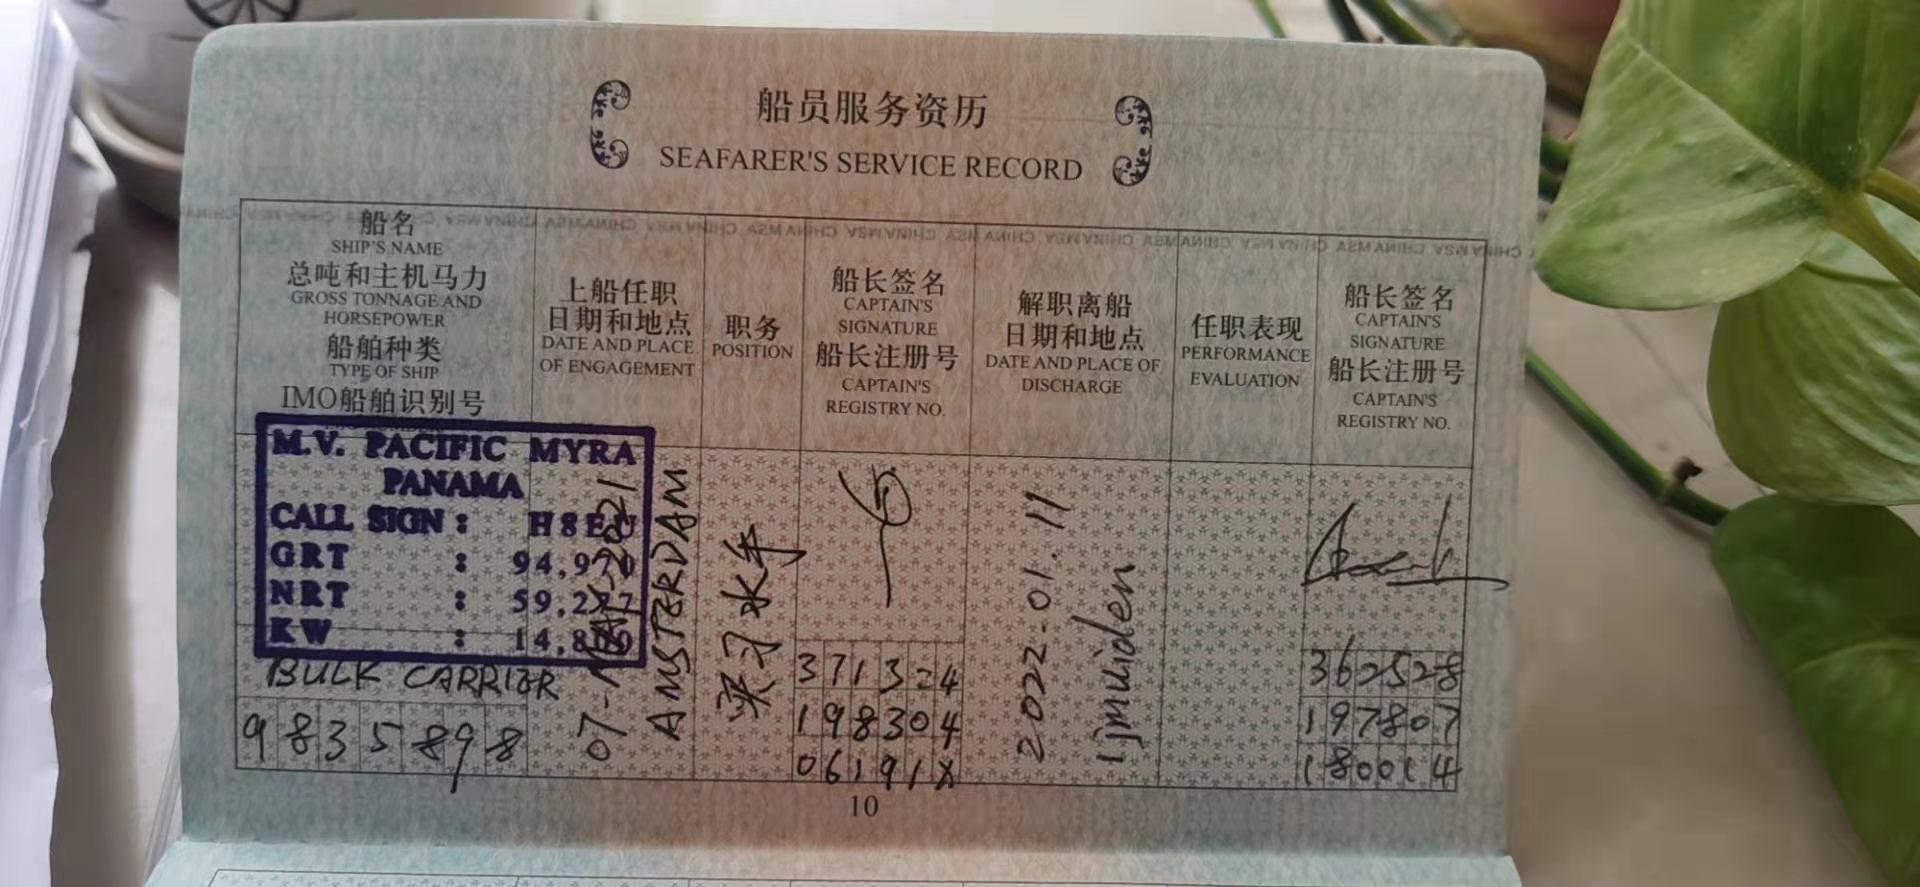 船员服务资历
SEAFARER'S SERVICE RECORD
船名
SHIP'S NAME
总吨和主机马力
GROSS TONNAGE AND
HORSEPOWER
船舶种类
TYPE OF SHIP
IMO船舶识别号
上船任职
日期和地点
DATE AND PLACE
OF ENGAGEMENT
职务
POSITION
船长签名
CAPTAIN'S
SIGNATURE
船长注册号
CAPTAIN'S
REGISTRY NO.
解职离船
日期和地点
DATE AND PLACE OF
DISCHARGE
任职表现
PERFORMANCE
EVALUATION
船长签名
CAPTAIN'S
SIGNATURE
船长注册号
CAPTAIN'S
REGISTRY NO.
M.V. PACIFIC MYRA
PANAMA
CALL SIGN :
GRT : 94,970
NRT :
KW :
BULK CARRIER
9835898
AMSTERDAM
实习水手
371324
198304
06191X
2022.01.11
Ijmuiden
362528
197807
180014
10